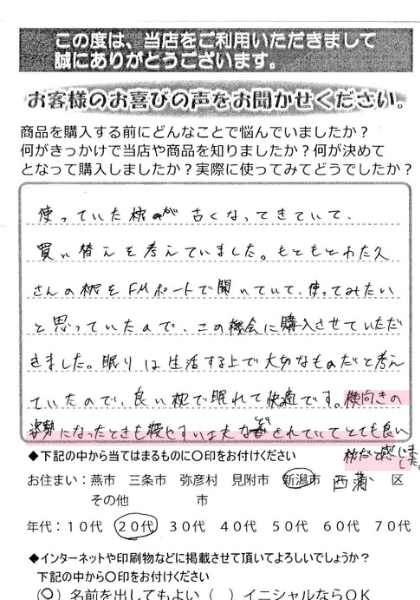 この度は、当店をご利用いただきまして
誠にありがとうございます。
お客様のお喜びの声をお聞かせください。
商品を購入する前にどんなことで悩んでいましたか？
何がきっかけで当店や商品を知りましたか？何が決めて
となって購入しましたか？実際に使ってみてどうでしたか？
使っていた枕が古くなってきていて、
買い替えを考えていました。もともとわた久
さんの枕をFMポートで聞いていて、使ってみたい
と思っていたので、この機会に購入させていただ
きました。眠りは生活する上で大切なものだと考え
ていたので、良い枕で眠れて快適です。横向きの
姿勢になったときも寝やすい工夫などされていてとても良い
枕だと感じました。
◆下記の中から当てはまるものに〇印をお付けください
お住まい：燕市 三条市 弥彦村 見附市 新潟市 西蒲 区
その他 市
年代：１０代 ２０代 ３０代 ４０代 ５０代 ６０代 ７０代
◆インターネットや印刷物などに掲載させて頂いてよろしいでしょうか？
下記の中から〇印をお付けください
（〇）名前を出してもよい （ ）イニシャルならＯＫ